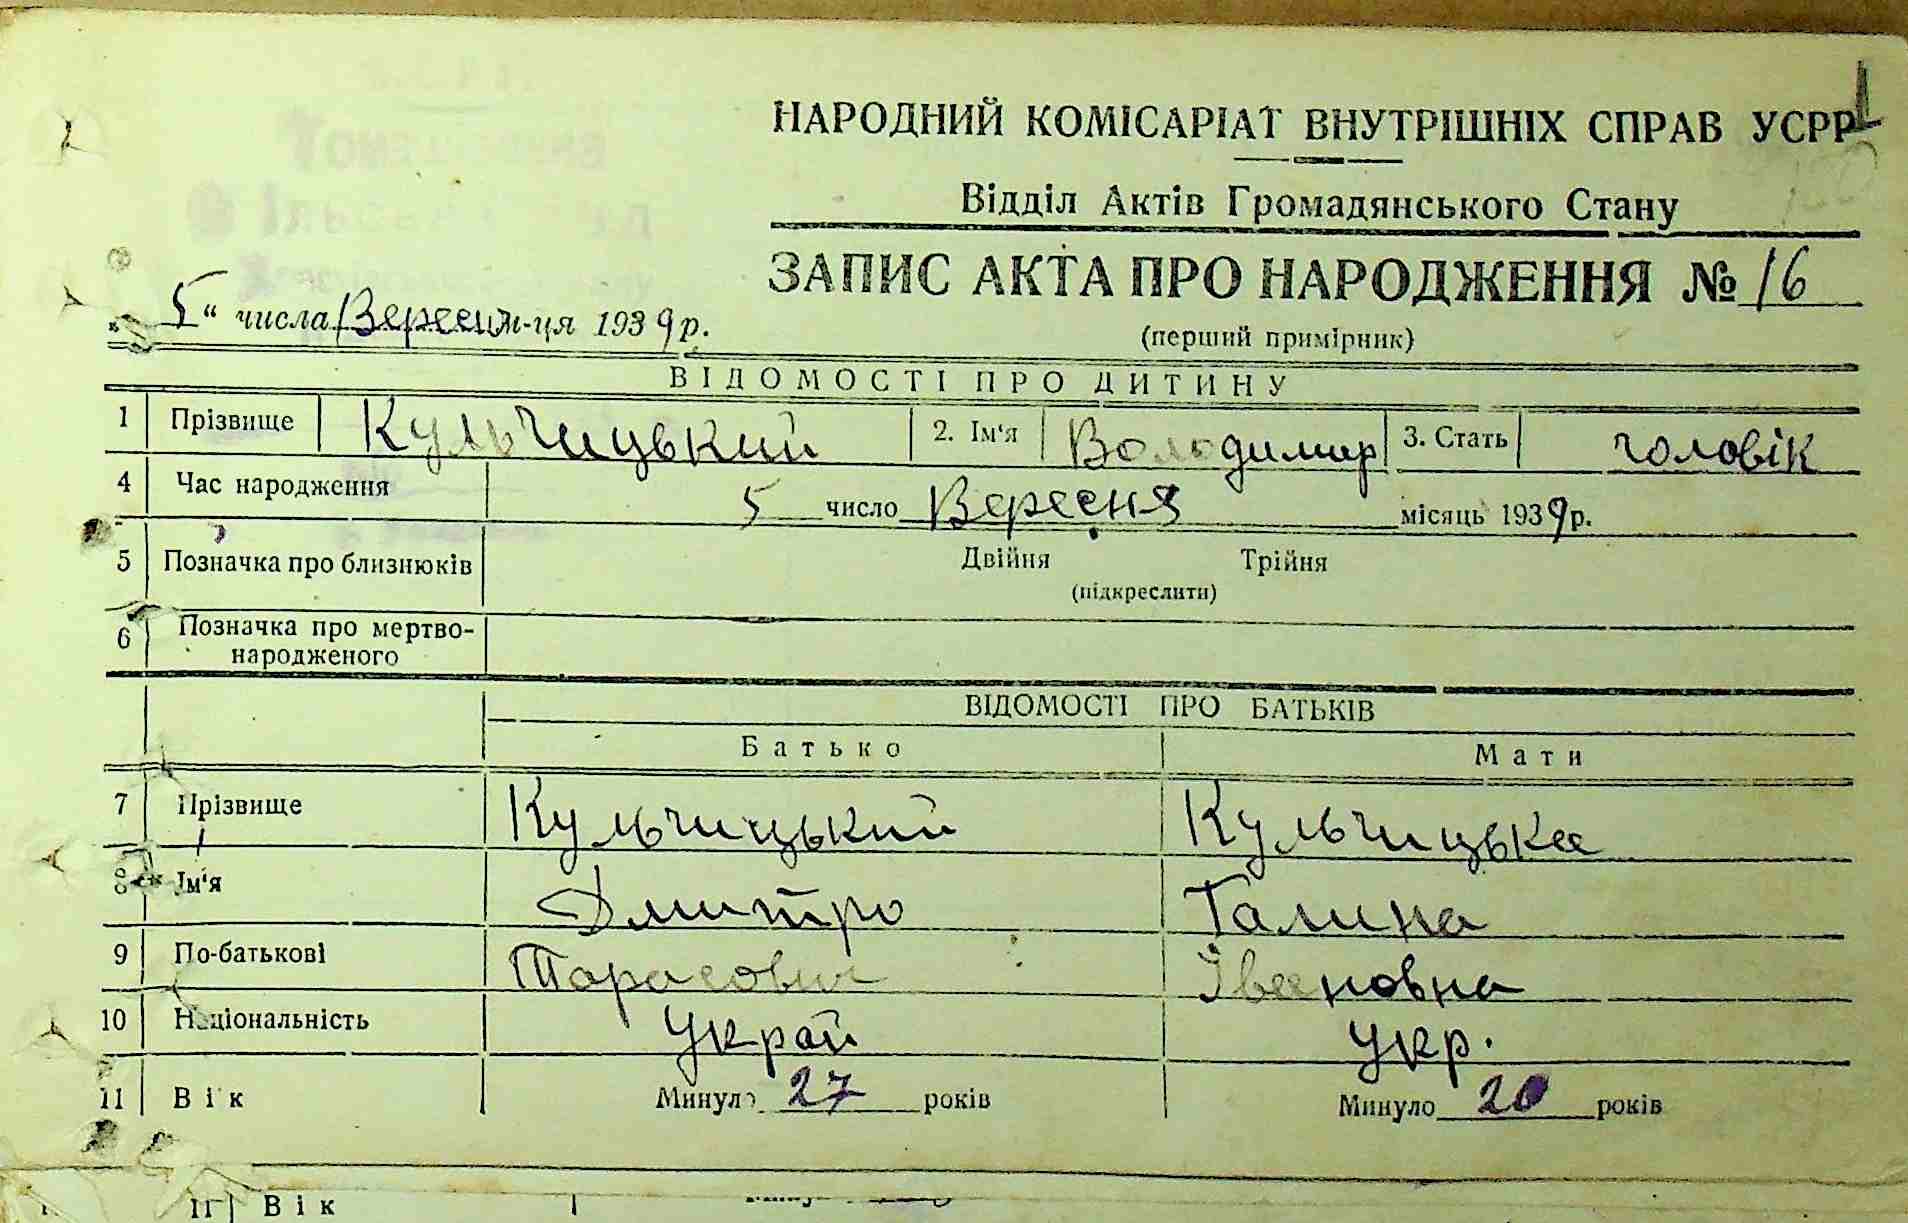 НАРОДНИЙ КОМІСАРІАТ ВНУТРІШНІХ СПРАВ УСРР
Відділ Актів Громадянського Стану
ЗАПИС АКТА ПРО НАРОДЖЕННЯ № 16
„5“ числа Вересня м-ця 1939 р.
(перший примірник)
ВІДОМОСТІ ПРО ДИТИНУ
1 Прізвище Кульчицький 2. Ім'я Володимир 3. Стать чоловік
4 Час народження 5 число Вересня місяць 1939 р.
5 Позначка про близнюків Двійня Трійня
(підкреслити)
6 Позначка про мертво-
народженого
ВІДОМОСТІ ПРО БАТЬКІВ
Батько Мати
7 Прізвище Кульчицький Кульчицька
8 Ім'я Дмитро Галина
9 По-батькові Тарасович Івановна
10 Національність Украй укр.
11 Вік Минуло 27 років Минуло 20 років
11 Вік